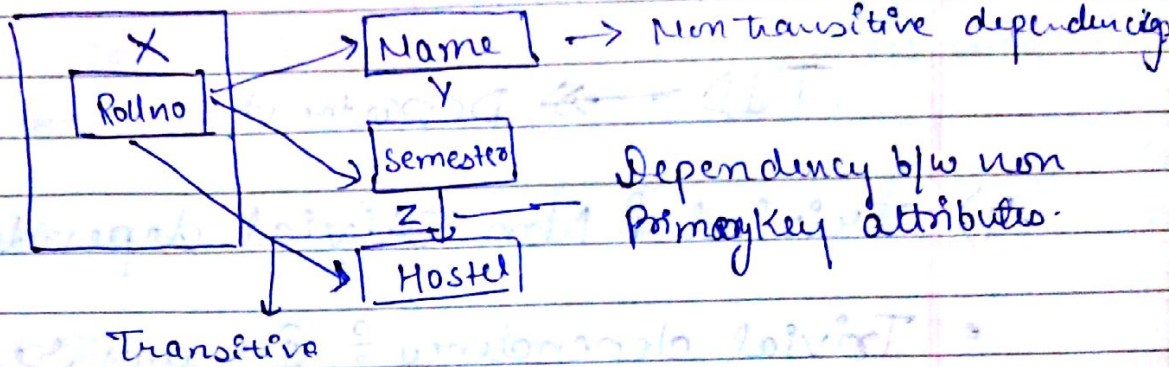 X
Name → Non transitive dependencies
Rollno
Y
Semester
Dependency b/w non
Primary Key attributes.
Z
Hostel
Transitive